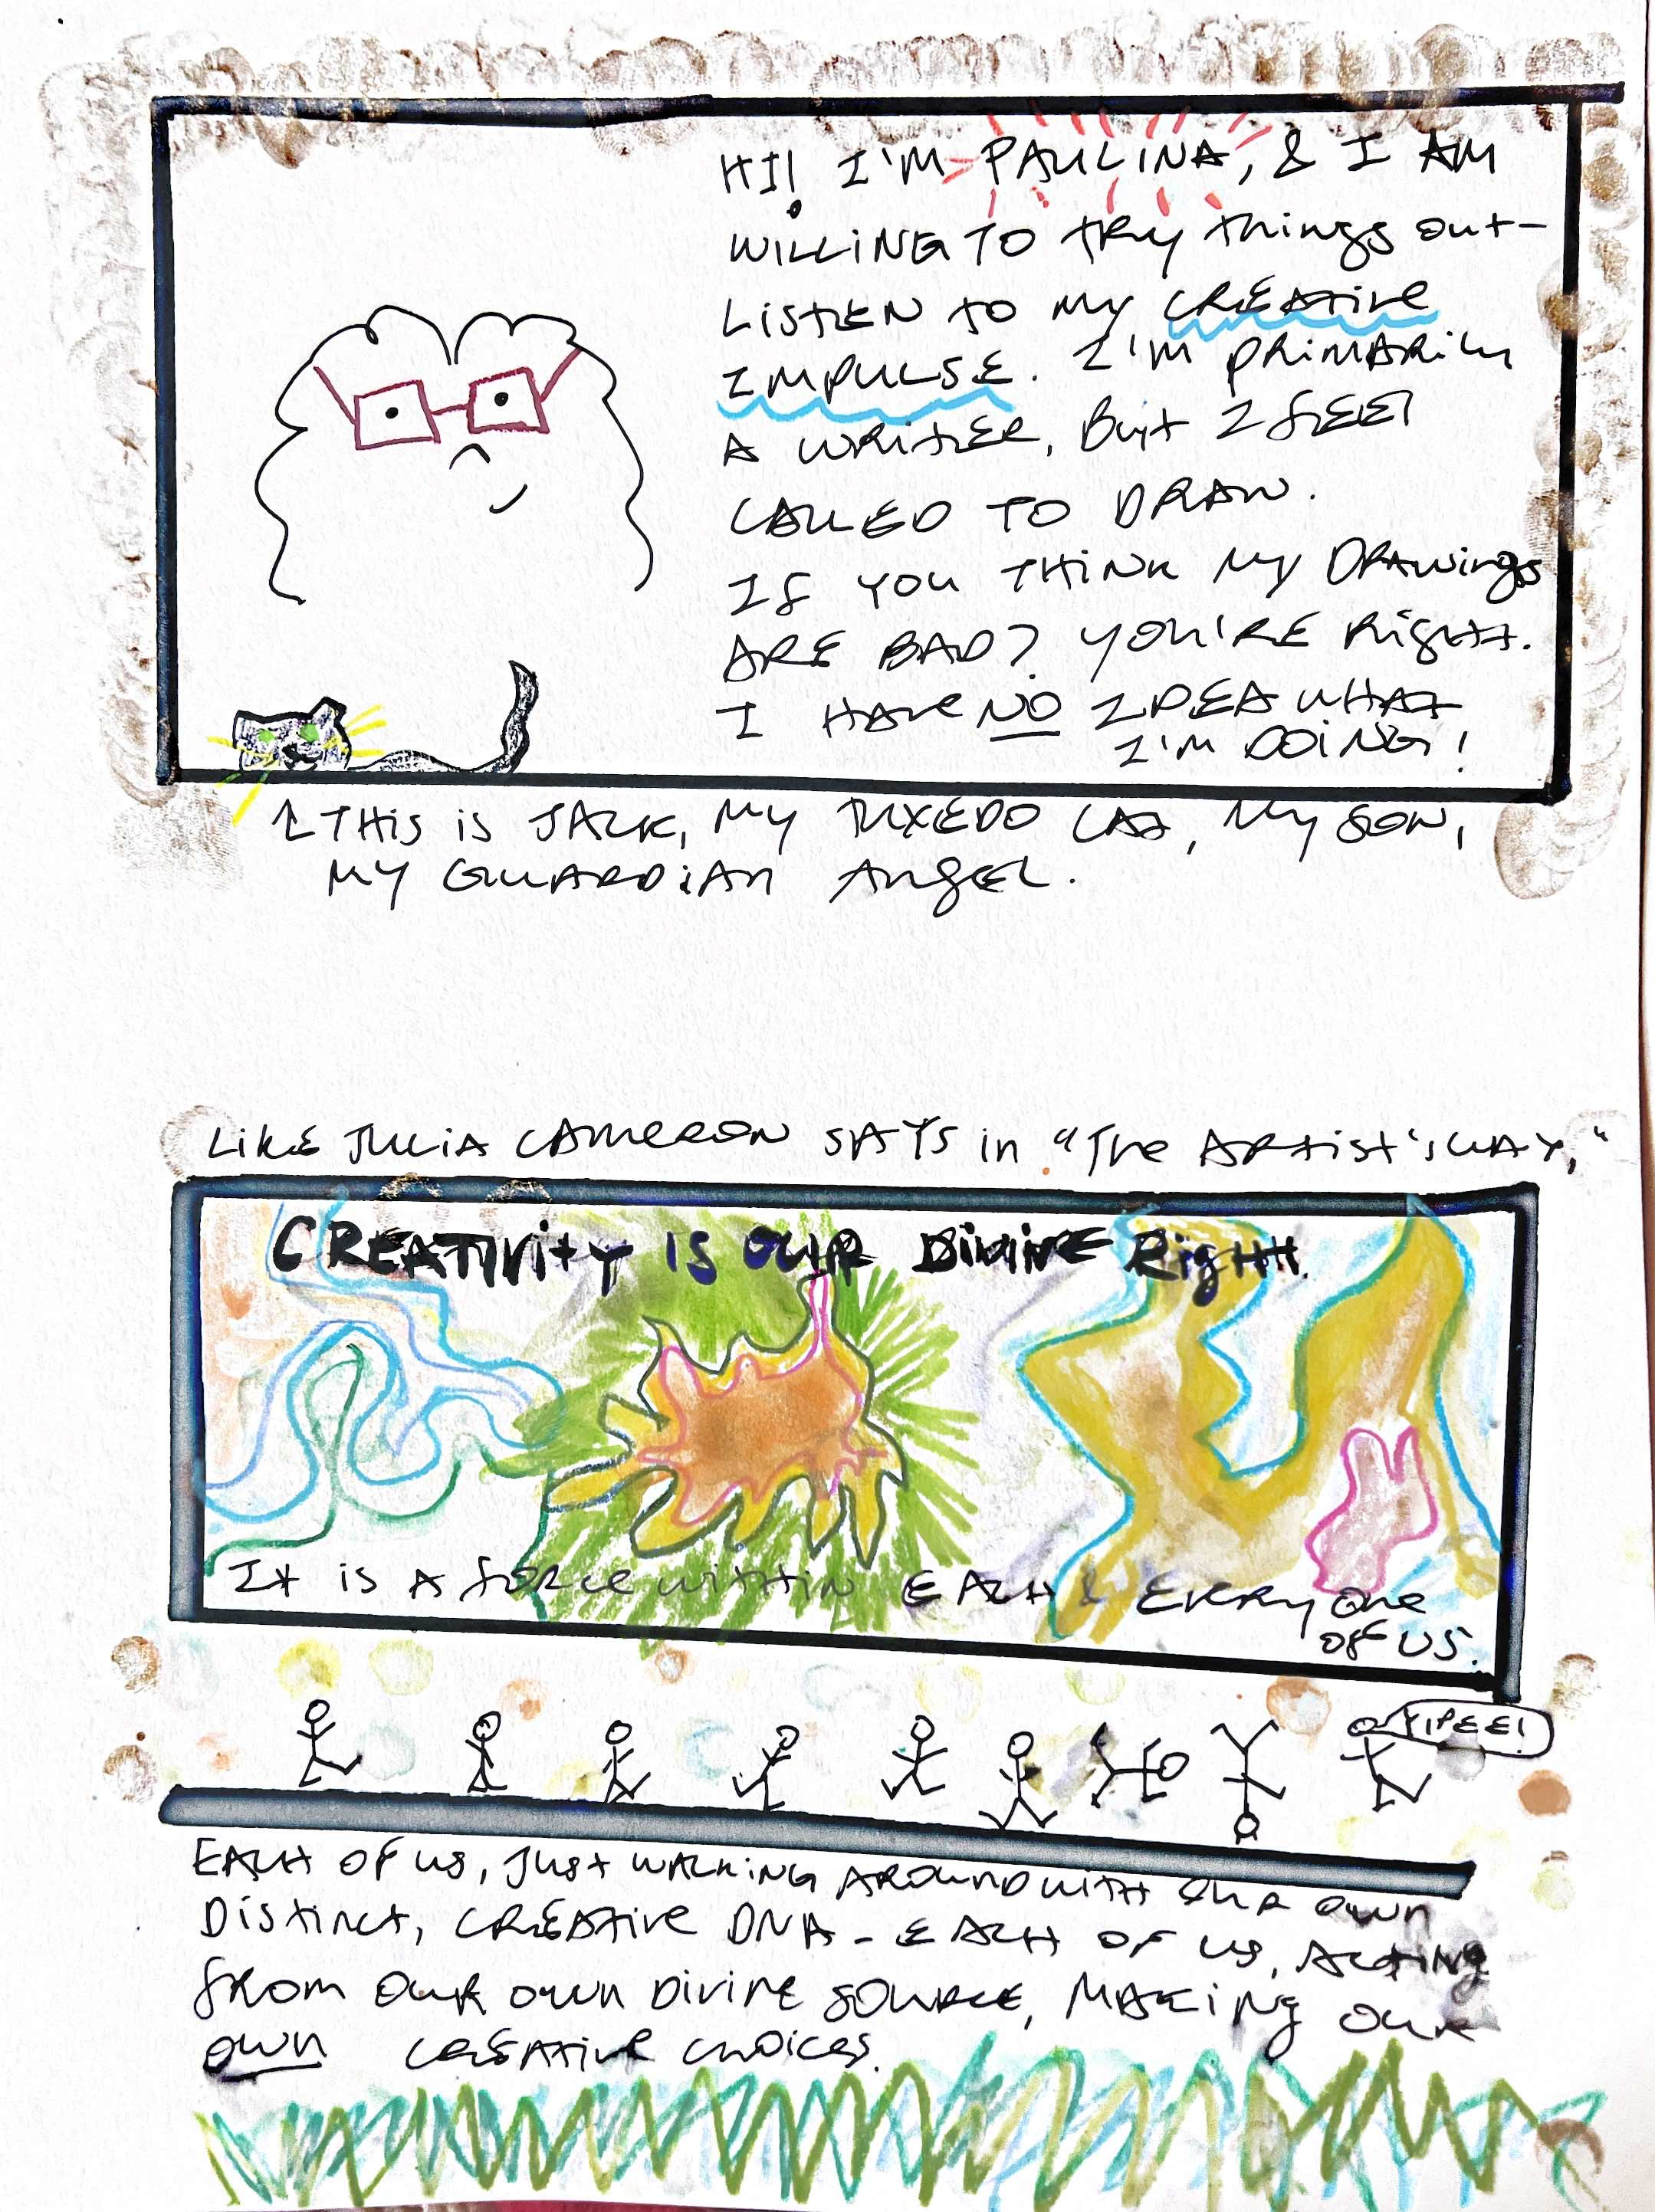 HI! I'M PAULINA, & I AM
WILLING TO TRY THINGS OUT-
LISTEN TO MY CREATIVE
IMPULSE. I'M PRIMARILY
A WRITER, BUT I FEEL
CALLED TO DRAW.
IF YOU THINK MY DRAWINGS
ARE BAD? YOU'RE RIGHT.
I HAVE NO IDEA WHAT
I'M DOING!
↑ THIS IS JACK, MY TUXEDO CAT, MY SON,
MY GUARDIAN ANGEL.
LIKE JULIA CAMERON SAYS IN "THE ARTIST'S WAY,"
CREATIVITY IS OUR DIVINE RIGHT.
IT IS A FORCE WITHIN EACH & EVERY ONE
OF US.
YIPEE!
EACH OF US, JUST WALKING AROUND WITH OUR OWN
DISTINCT, CREATIVE DNA - EACH OF US, ACTING
FROM OUR OWN DIVINE SOURCE, MAKING OUR
OWN CREATIVE CHOICES.